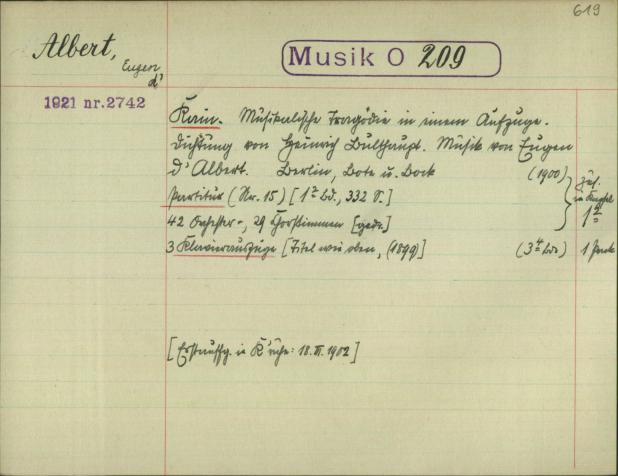 619
Albert, Eugen d'
Musik O 209
1921 nr. 2742
Kain. Musikalische Tragödie in einem Aufzuge.
Dichtung von Heinrich Bulthaupt. Musik von Eugen
d'Albert. Berlin, Bote u. Bock (1900)
Partitur (Nr. 15) [1 Bd., 332 S.]
42 Orchester-, 29 Chorstimmen [gedr.]
3 Klavierauszüge [Titel wie oben, (1899)] (3 Bde) 1 Pack
zus. in
1
[Erstauffg. in K'ruhe: 18. 1902]